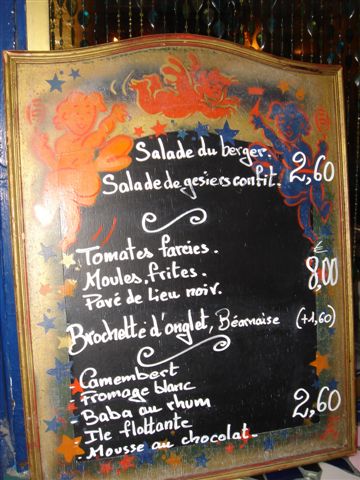 Salade du berger.
Salade de gesiers confit. 2,60
Tomates farcies.
€
Moules, frites. 8,00
Pavé de Lieu noir.
Brochette d'onglet, Béarnaise (+1,60)
- Camembert
- Fromage blanc
- Baba au rhum 2,60
- Ile flottante
- Mousse au chocolat.